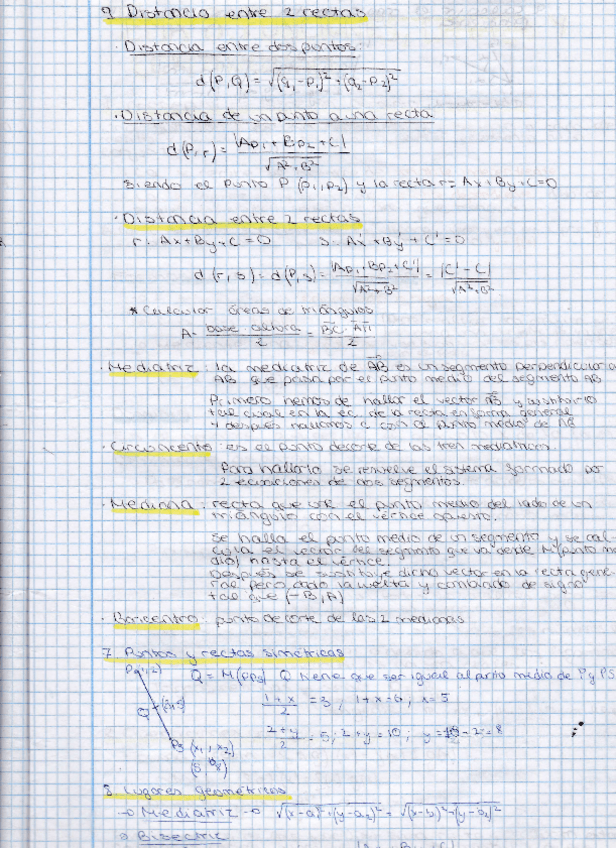 9 Distancia entre 2 rectas
· Distancia entre dos puntos:
d(P,Q) = √(q₁-p₁)²+(q₂-p₂)²
· Distancia de un punto a una recta
d(P,r) = |Ap₁+Bp₂+C| / √A²+B²
siendo el punto P (p₁,p₂) y la recta r= Ax+By+C=0
· Distancia entre 2 rectas
r: Ax+By+C=0 s: Ax+By+C'=0
d(r,s) = d(P,s) = |Ap₁+Bp₂+C'| / √A²+B² = |C'-C| / √A²+B²
* Calcular áreas de triángulos
A= base · altura / 2 =
· Mediatriz: la mediatriz de AB es un segmento perpendicular a
AB que pasa por el punto medio del segmento AB
Primero hemos de hallar el vector AB y sustituirlo
tal cual en la ec. de la recta en forma general
y después hallamos C con el punto medio de AB
· Circuncentro: es el punto de corte de las tres mediatrices.
Para hallarlo se resuelve el sistema formado por
2 ecuaciones de dos segmentos.
· Mediana: recta que une el punto medio del lado de un
triángulo con el vértice opuesto.
Se halla el punto medio de un segmento y se cal-
cula el vector del segmento que va desde M (punto me
dio) hasta el vértice.
Después se sustituye dicho vector en la recta gene-
ral pero dado la vuelta y cambiado de signo
tal que (-B,A)
· Baricentro: punto de corte de las 2 medianas
7. Puntos y rectas simétricas
P(1,2) Q = M(PPs) Q tiene que ser igual al punto medio de P y PS
1+x / 2 = 3; 1+x=6; x=5
Q (3,5)
2+y / 2 = 5; 2+y=10; y=10-2=8
Ps (x₁,x₂)
8. Lugares geométricos
→ Mediatriz → √(x-a₁)²+(y-a₂)² = √(x-b₁)²+(y-b₂)²
→ Bisectriz